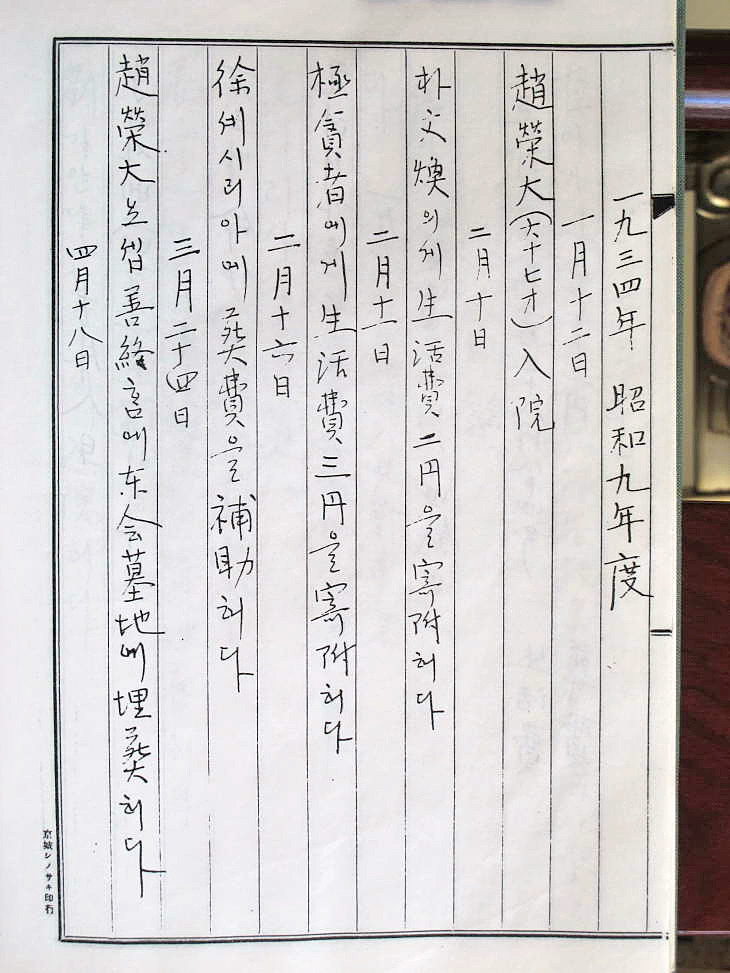 一九三四年 昭和九年度
一月十二日
趙榮大(六十七才)入院
二月十日
朴文煥의게 生活費 二円을 寄附하다
二月十一日
極貧者에게 生活費 三円을 寄附하다
二月十六日
徐세시리아에 葬費을 補助하다
三月二十四日
趙榮大 善終 에 本会墓地에 埋葬하다
四月十八日
京城シノサキ印行